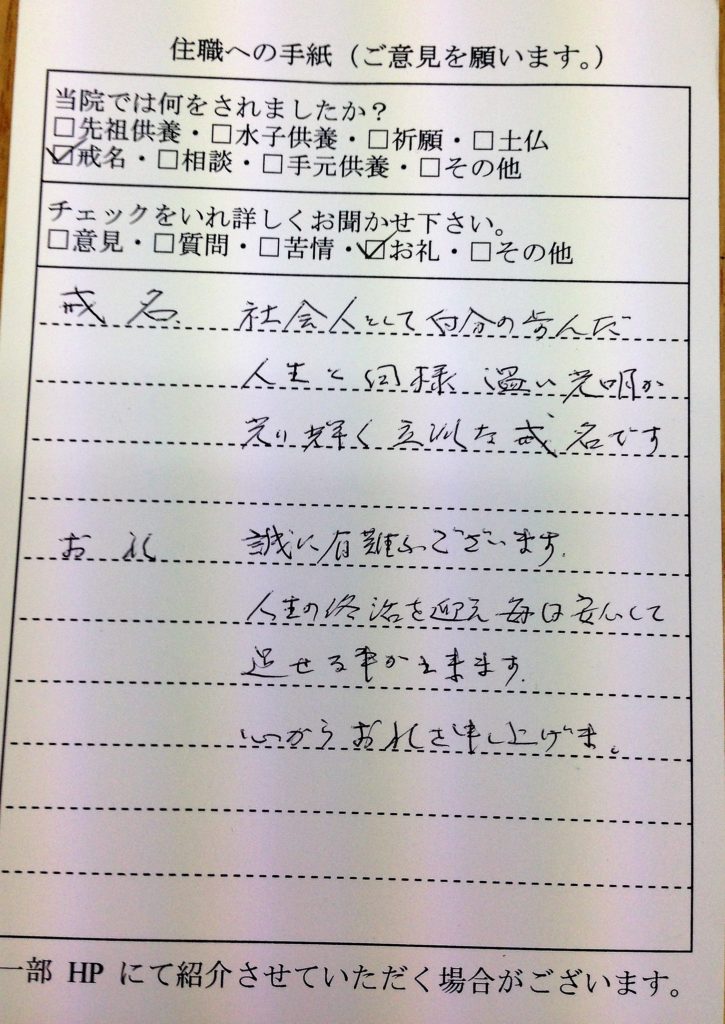 住職への手紙（ご意見を願います。）
当院では何をされましたか？
□先祖供養・□水子供養・□祈願・□土仏
☑戒名・□相談・□手元供養・□その他
チェックをいれ詳しくお聞かせ下さい。
□意見・□質問・□苦情・☑お礼・□その他
戒名 社会人として自分の歩んだ
人生と同様 温い光明が
光り輝く立派な戒名です
お礼 誠に有難ふございます.
人生の終活を迎え毎日安心して
過せる事が出来ます.
心からお礼を申し上げま。
一部 HP にて紹介させていただく場合がございます。